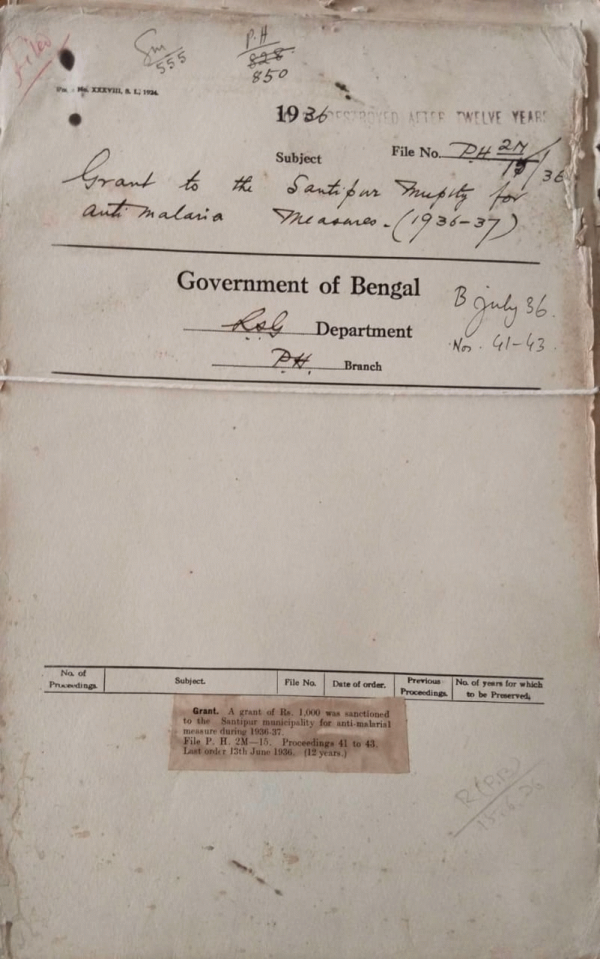 Filed
Sm
555
P.H
828
850
No. XXXVIII, S. I., 1934.
1936
DESTROYED AFTER TWELVE YEARS
Subject
File No. P.H 2M/15/36
Grant to the Santipur Muplty for
anti malaria Measures. (1936-37)
Government of Bengal
B July 36.
LSG Department
Nos. 41-43.
P.H. Branch
No. of Proceedings.
Subject.
File No.
Date of order.
Previous Proceedings.
No. of years for which to be Preserved,
Grant. A grant of Rs. 1,000 was sanctioned
to the Santipur municipality for anti-malarial
measure during 1936-37.
File P. H. 2M—15. Proceedings 41 to 43.
Last order 13th June 1936. (12 years.)